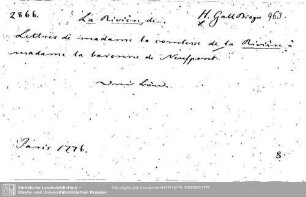 2866. La Rivière, de. H. Gall. Biogr. 963
Lettres de madame la comtesse de la Rivière, à
madame la baronne de Neufpont.
Paris 1776. 8.
Sächsische Landesbibliothek -
Staats- und Universitätsbibliothek Dresden